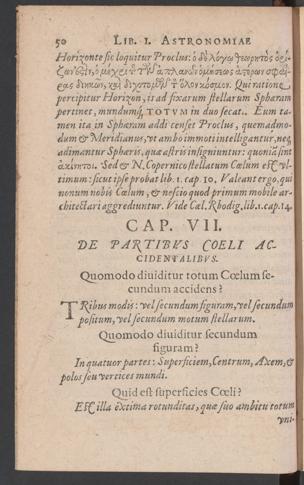 50 LIB. I. ASTRONOMIAE
Horizonte sic loquitur Proclus: ὁ δὲ λόγῳ θεωρητὸς ὁρί-
ζων ὅς
Qui ratione
percipitur Horizon, is ad fixarum stellarum Sphæram
pertinet, mundumq́; TOTVM in duo secat.. Eum ta-
men ita in Sphæram addi censet Proclus, quemadmo-
dum & Meridianus, vt ambo immoti intelligantur, neq;
adimantur Sphæris, quæ astris insigniuntur: quoniā sint
ἀκίνητοι. Sed & N. Copernico stellatum Cœlum est vl-
timum: sicut ipse probat lib. 1. cap. 10. Valeant ergo, qui
nonum nobis Cœlum, & nescio quod primum mobile ar-
chitectari aggrediuntur. Vide Cæl. Rhodig. lib. 1. cap. 14.
CAP. VII.
DE PARTIBVS COELI AC-
CIDENTALIBVS.
Quomodo diuiditur totum Cœlum se-
cundum accidens?
TRibus modis: vel secundum figuram, vel secundum
positum, vel secundum motum stellarum.
Quomodo diuiditur secundum
figuram?
In quatuor partes: Superficiem, Centrum, Axem, &
polos seu vertices mundi.
Quid est superficies Cœli?
Est illa extima rotunditas, quæ suo ambitu totum
vni-